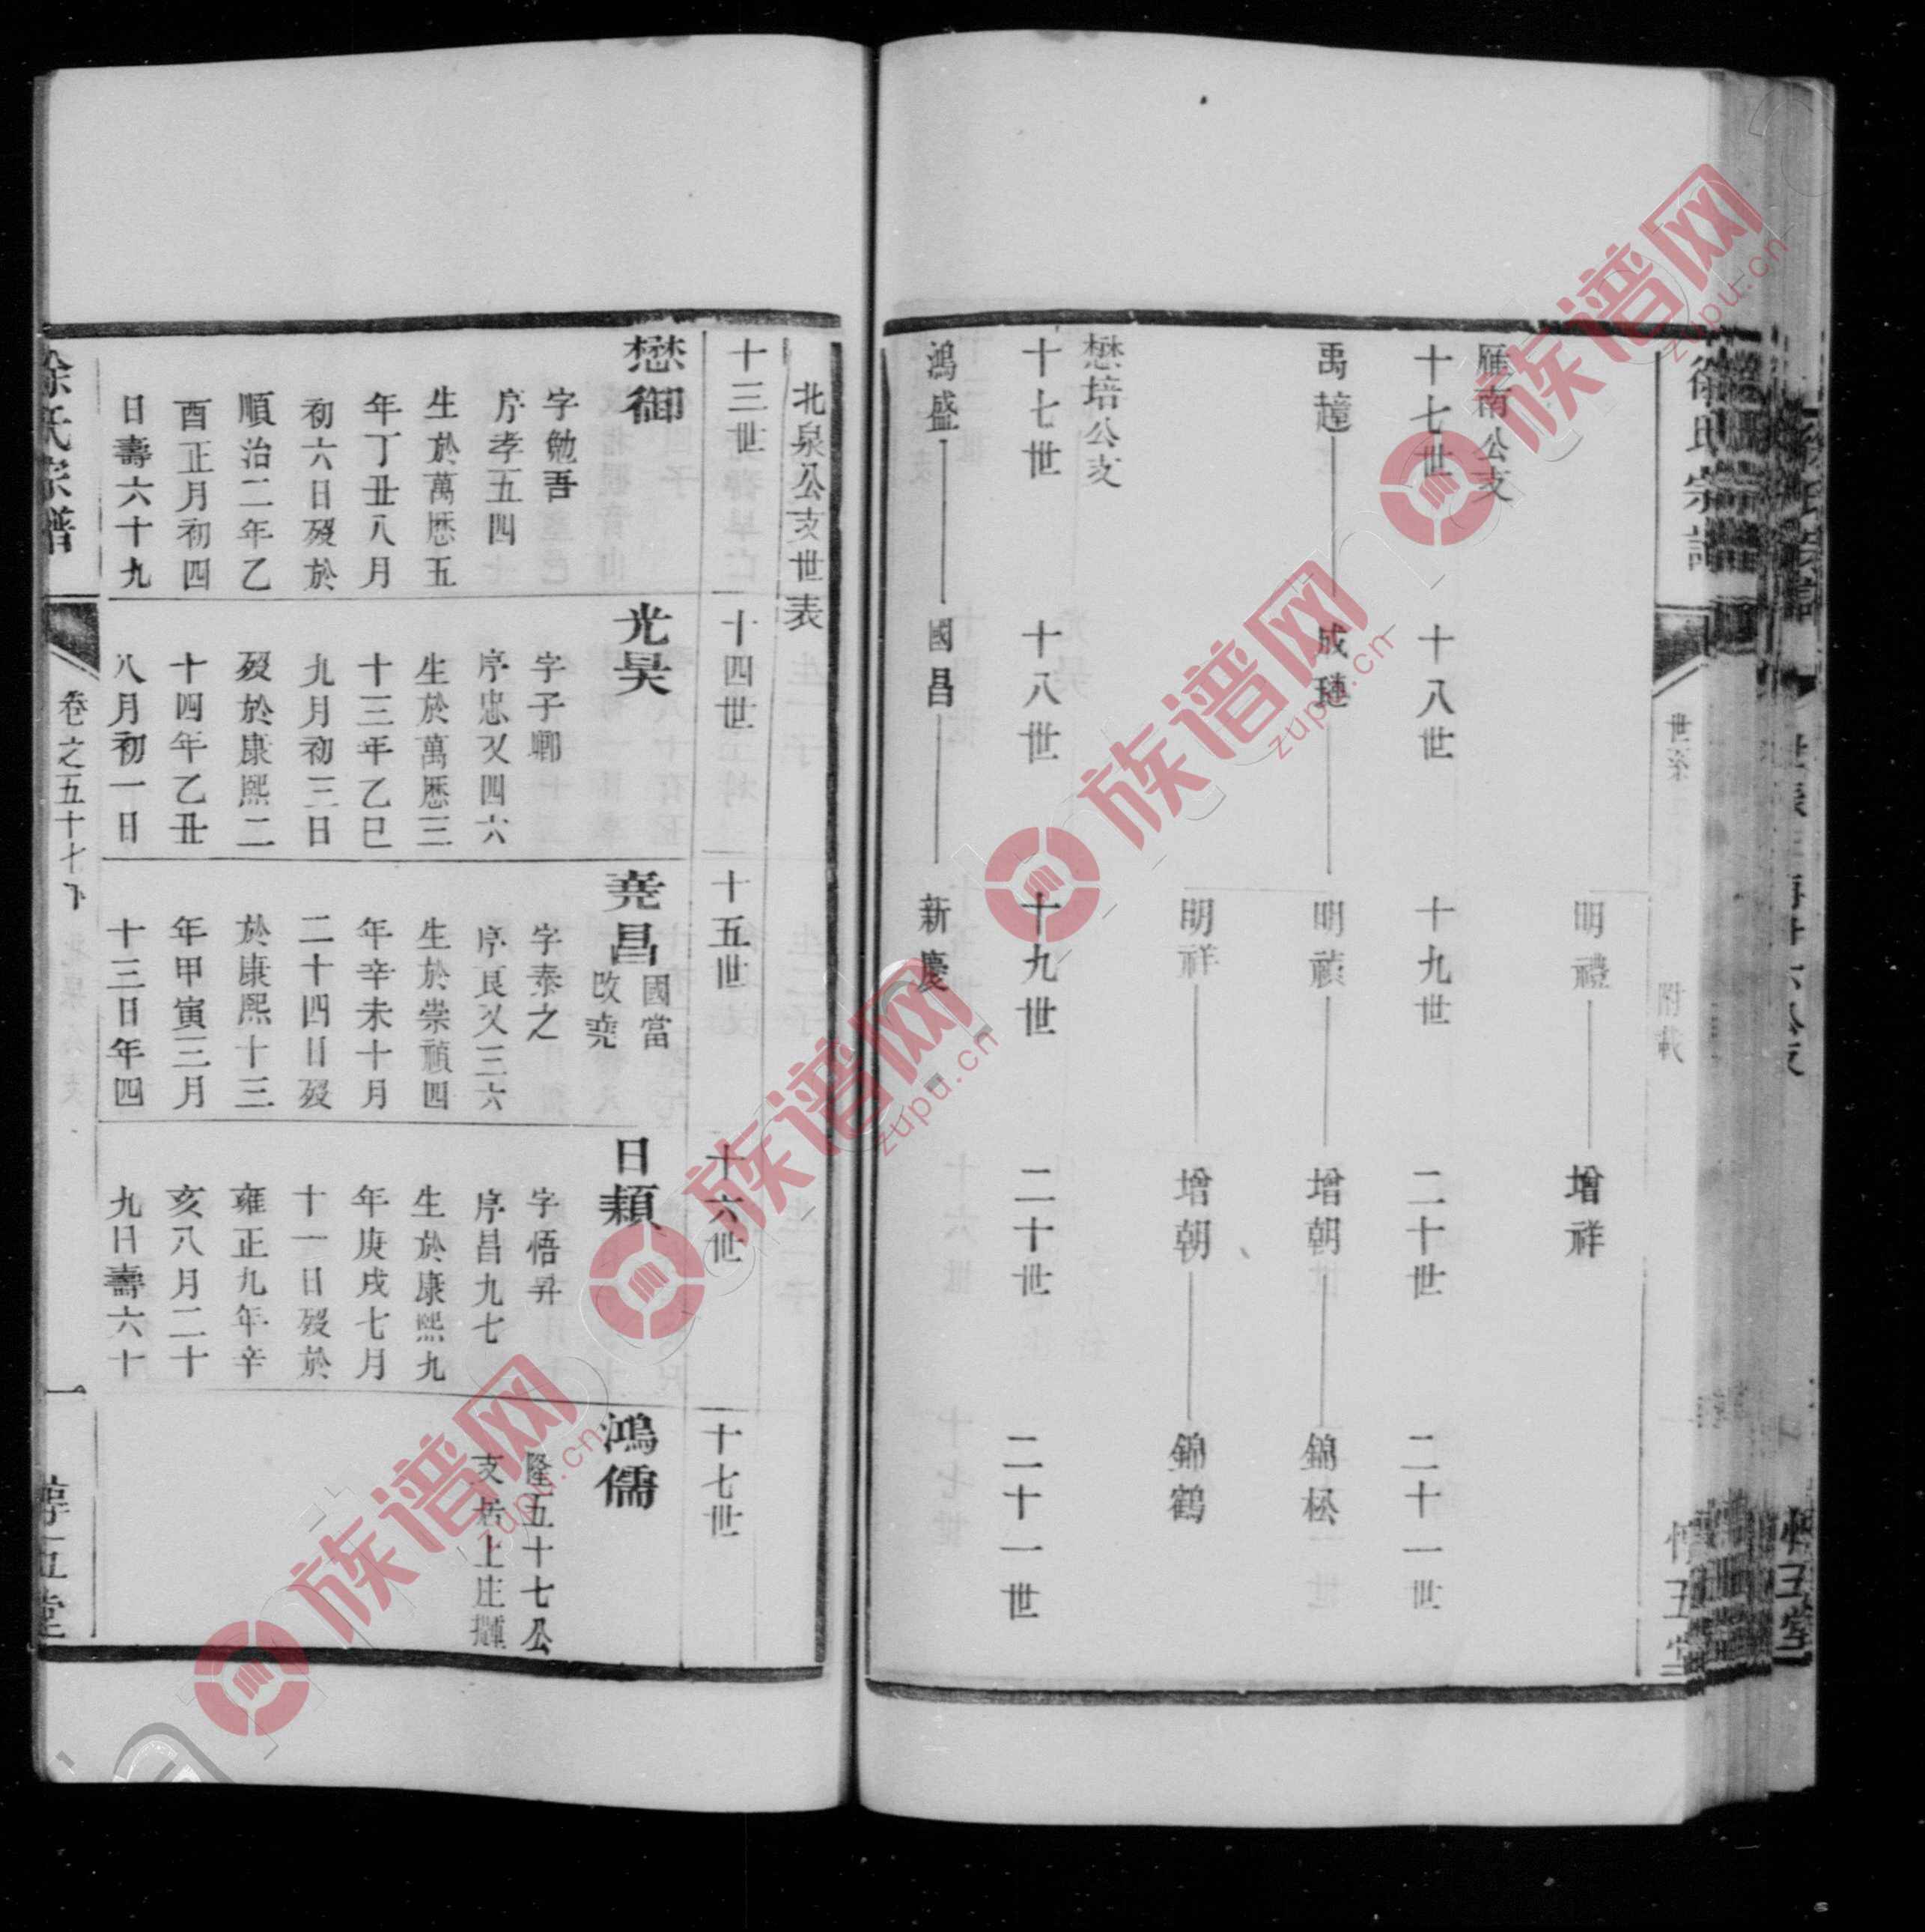 徐氏宗譜
世系
附載
明禮
增祥
雁南公支
十七世
十八世
十九世
二十世
二十一世
禹
成璉
明禎
增朝
錦松
明祥
增朝
錦鶴
懋培公支
十七世
十八世
十九世
二十世
二十一世
鴻盛
國昌
新慶
北泉公支世表
十三世
十四世
十五世
十六世
十七世
懋御
字勉吾
序孝五四
生於萬歷五
年丁丑八月
初六日歿於
順治二年乙
酉正月初四
日壽六十九
光昊
字子卿
序忠又四六
生於萬歷三
十三年乙巳
九月初三日
歿於康熙二
十四年乙丑
八月初一日
堯昌
國當
改堯
字泰之
序良又三六
生於崇禎四
年辛未十月
二十四日歿
於康熙十三
年甲寅三月
十三日年四
日穎
字悟昇
序昌九七
生於康熙九
年庚戌七月
十一日歿於
雍正九年辛
亥八月二十
九日壽六十
鴻儒
隆五十七公
支居上庄
徐氏宗譜
卷之五十七下
一
族谱网
zupu.cn
族谱网
zupu.cn
族谱网
zupu.cn
族谱网
zupu.cn